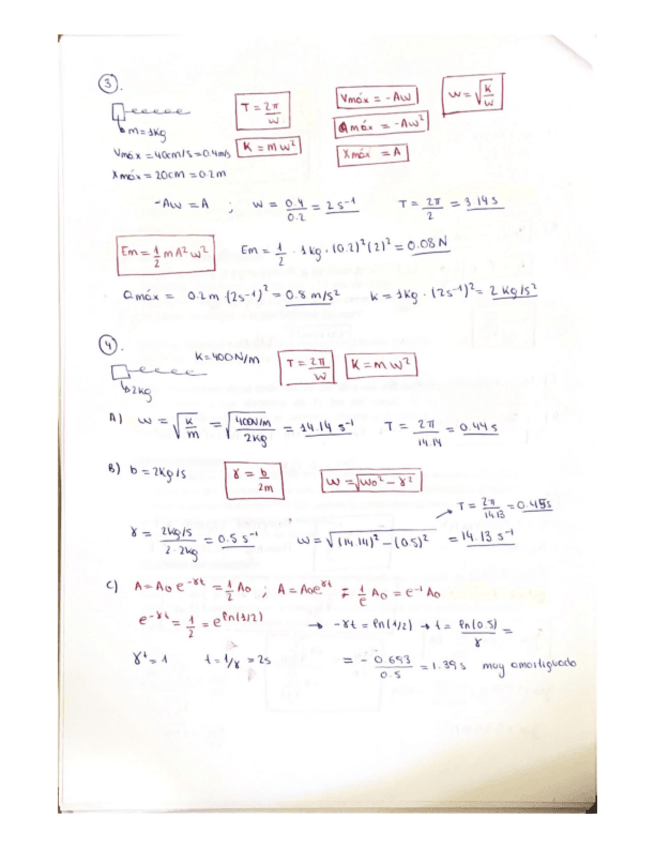 3.
m = 1Kg
T = 2π/w
K = m w²
Vmáx = -Aw
amáx = -Aw²
Xmáx = A
w = √(k/w)
Vmáx = 40cm/s = 0.4m/s
Xmáx = 20cm = 0.2m
-Aw = A ; w = 0.4/0.2 = 2 s⁻¹ T = 2π/2 = 3.14 s
Em = 1/2 m A² w² Em = 1/2 · 1kg · (0.2)² (2)² = 0.08 N
amáx = 0.2m · (2s⁻¹)² = 0.8 m/s² k = 1Kg · (2s⁻¹)² = 2 Kg/s²
4.
K = 400N/m T = 2π/w K = m w²
2kg
A) w = √(k/m) = √(400N/m / 2Kg) = 14.14 s⁻¹ T = 2π/14.14 = 0.44 s
B) b = 2Kg/s γ = b/2m w = √(w0² - γ²)
T = 2π/14.13 = 0.45s
γ = 2kg/s / 2·2kg = 0.5 s⁻¹ w = √((14.14)² - (0.5)²) = 14.13 s⁻¹
C) A = A0 e^-γt = 1/2 A0 ; A = A0 e^γt = 1/e A0 = e⁻¹ A0
e^-γt = 1/2 = e^ln(1/2) → -γt = ln(1/2) → t = ln(0.5)/γ =
γt = 1 t = 1/γ = 2s = - 0.693/0.5 = 1.39 s muy amortiguado